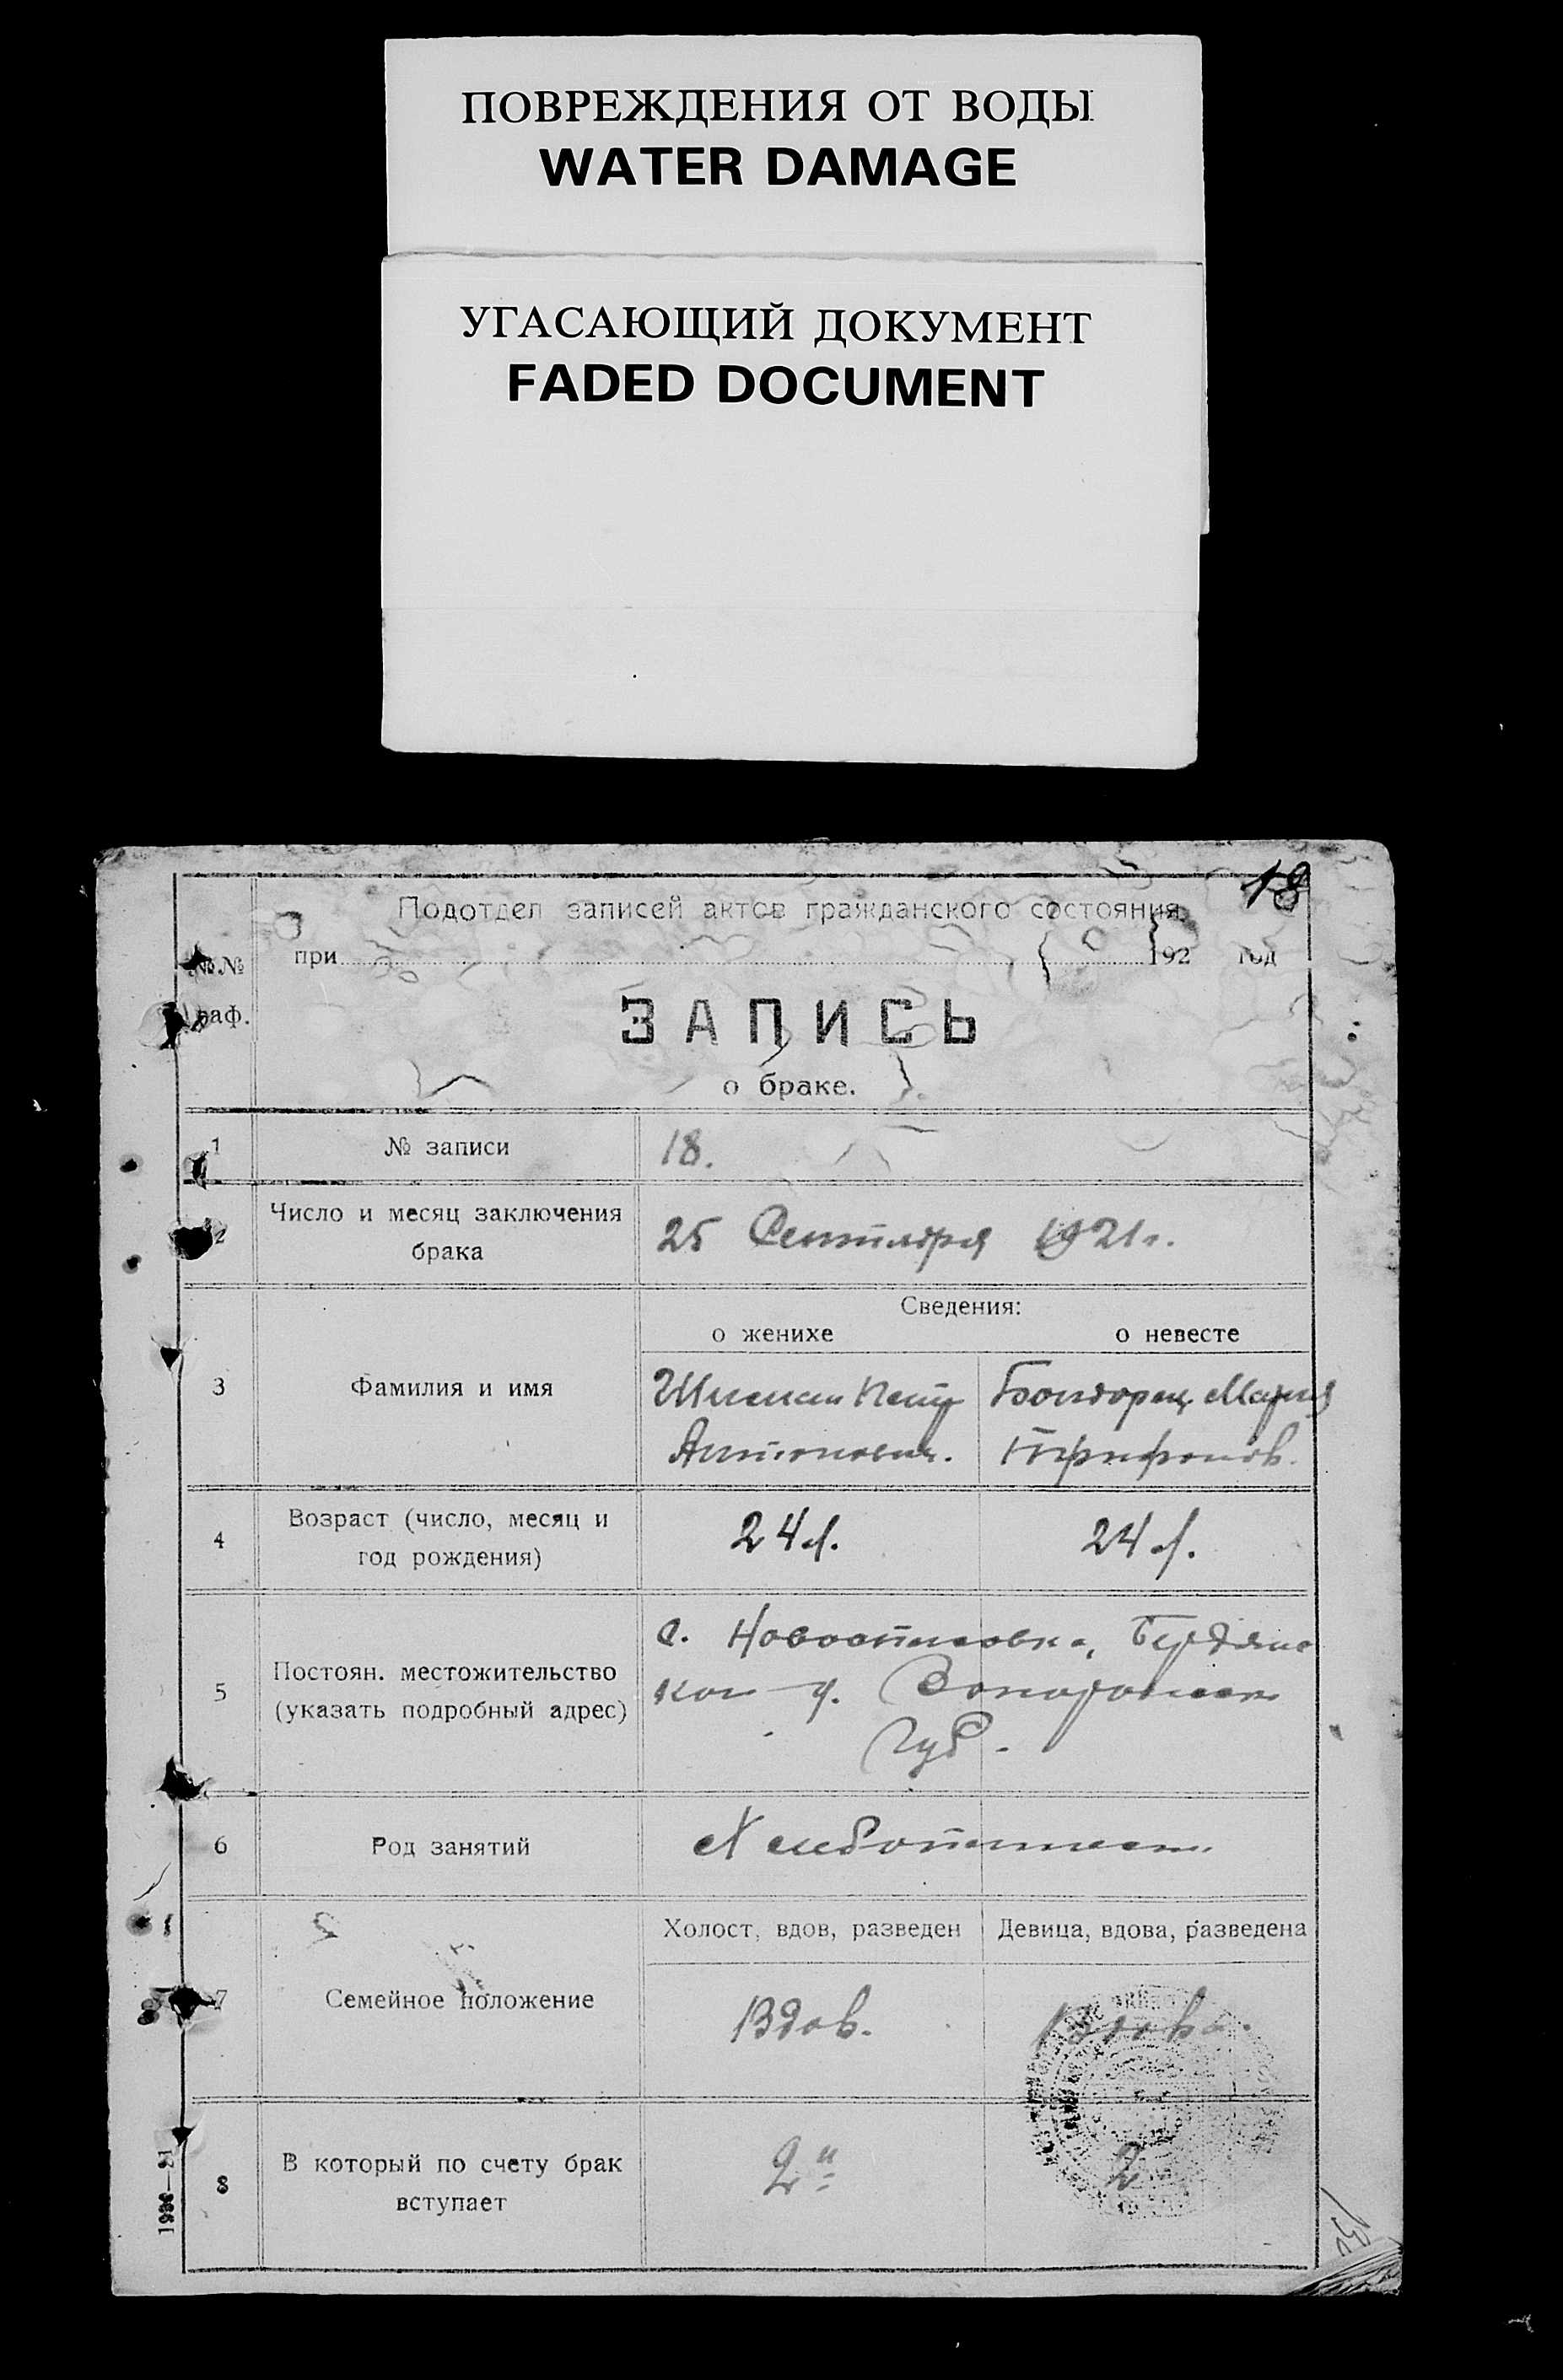 ПОВРЕЖДЕНИЯ ОТ ВОДЫ
WATER DAMAGE
УГАСАЮЩИЙ ДОКУМЕНТ
FADED DOCUMENT
18
Подотдел записей актов гражданского состояния
№№ при 192 год
раф.
ЗАПИСЬ
о браке.
1 № записи 18.
2 Число и месяц заключения брака 25 Сентября 1921 г.
Сведения:
о женихе о невесте
3 Фамилия и имя
Петр Мария
Антонович. Трифонов.
4 Возраст (число, месяц и год рождения) 24 л. 24 л.
5 Постоян. местожительство (указать подробный адрес)
с. Бердянс
кои у.
Губ.
6 Род занятий
Холост, вдов, разведен Девица, вдова, разведена
7 Семейное положение Вдов. Вдова.
8 В который по счету брак вступает 2й 2